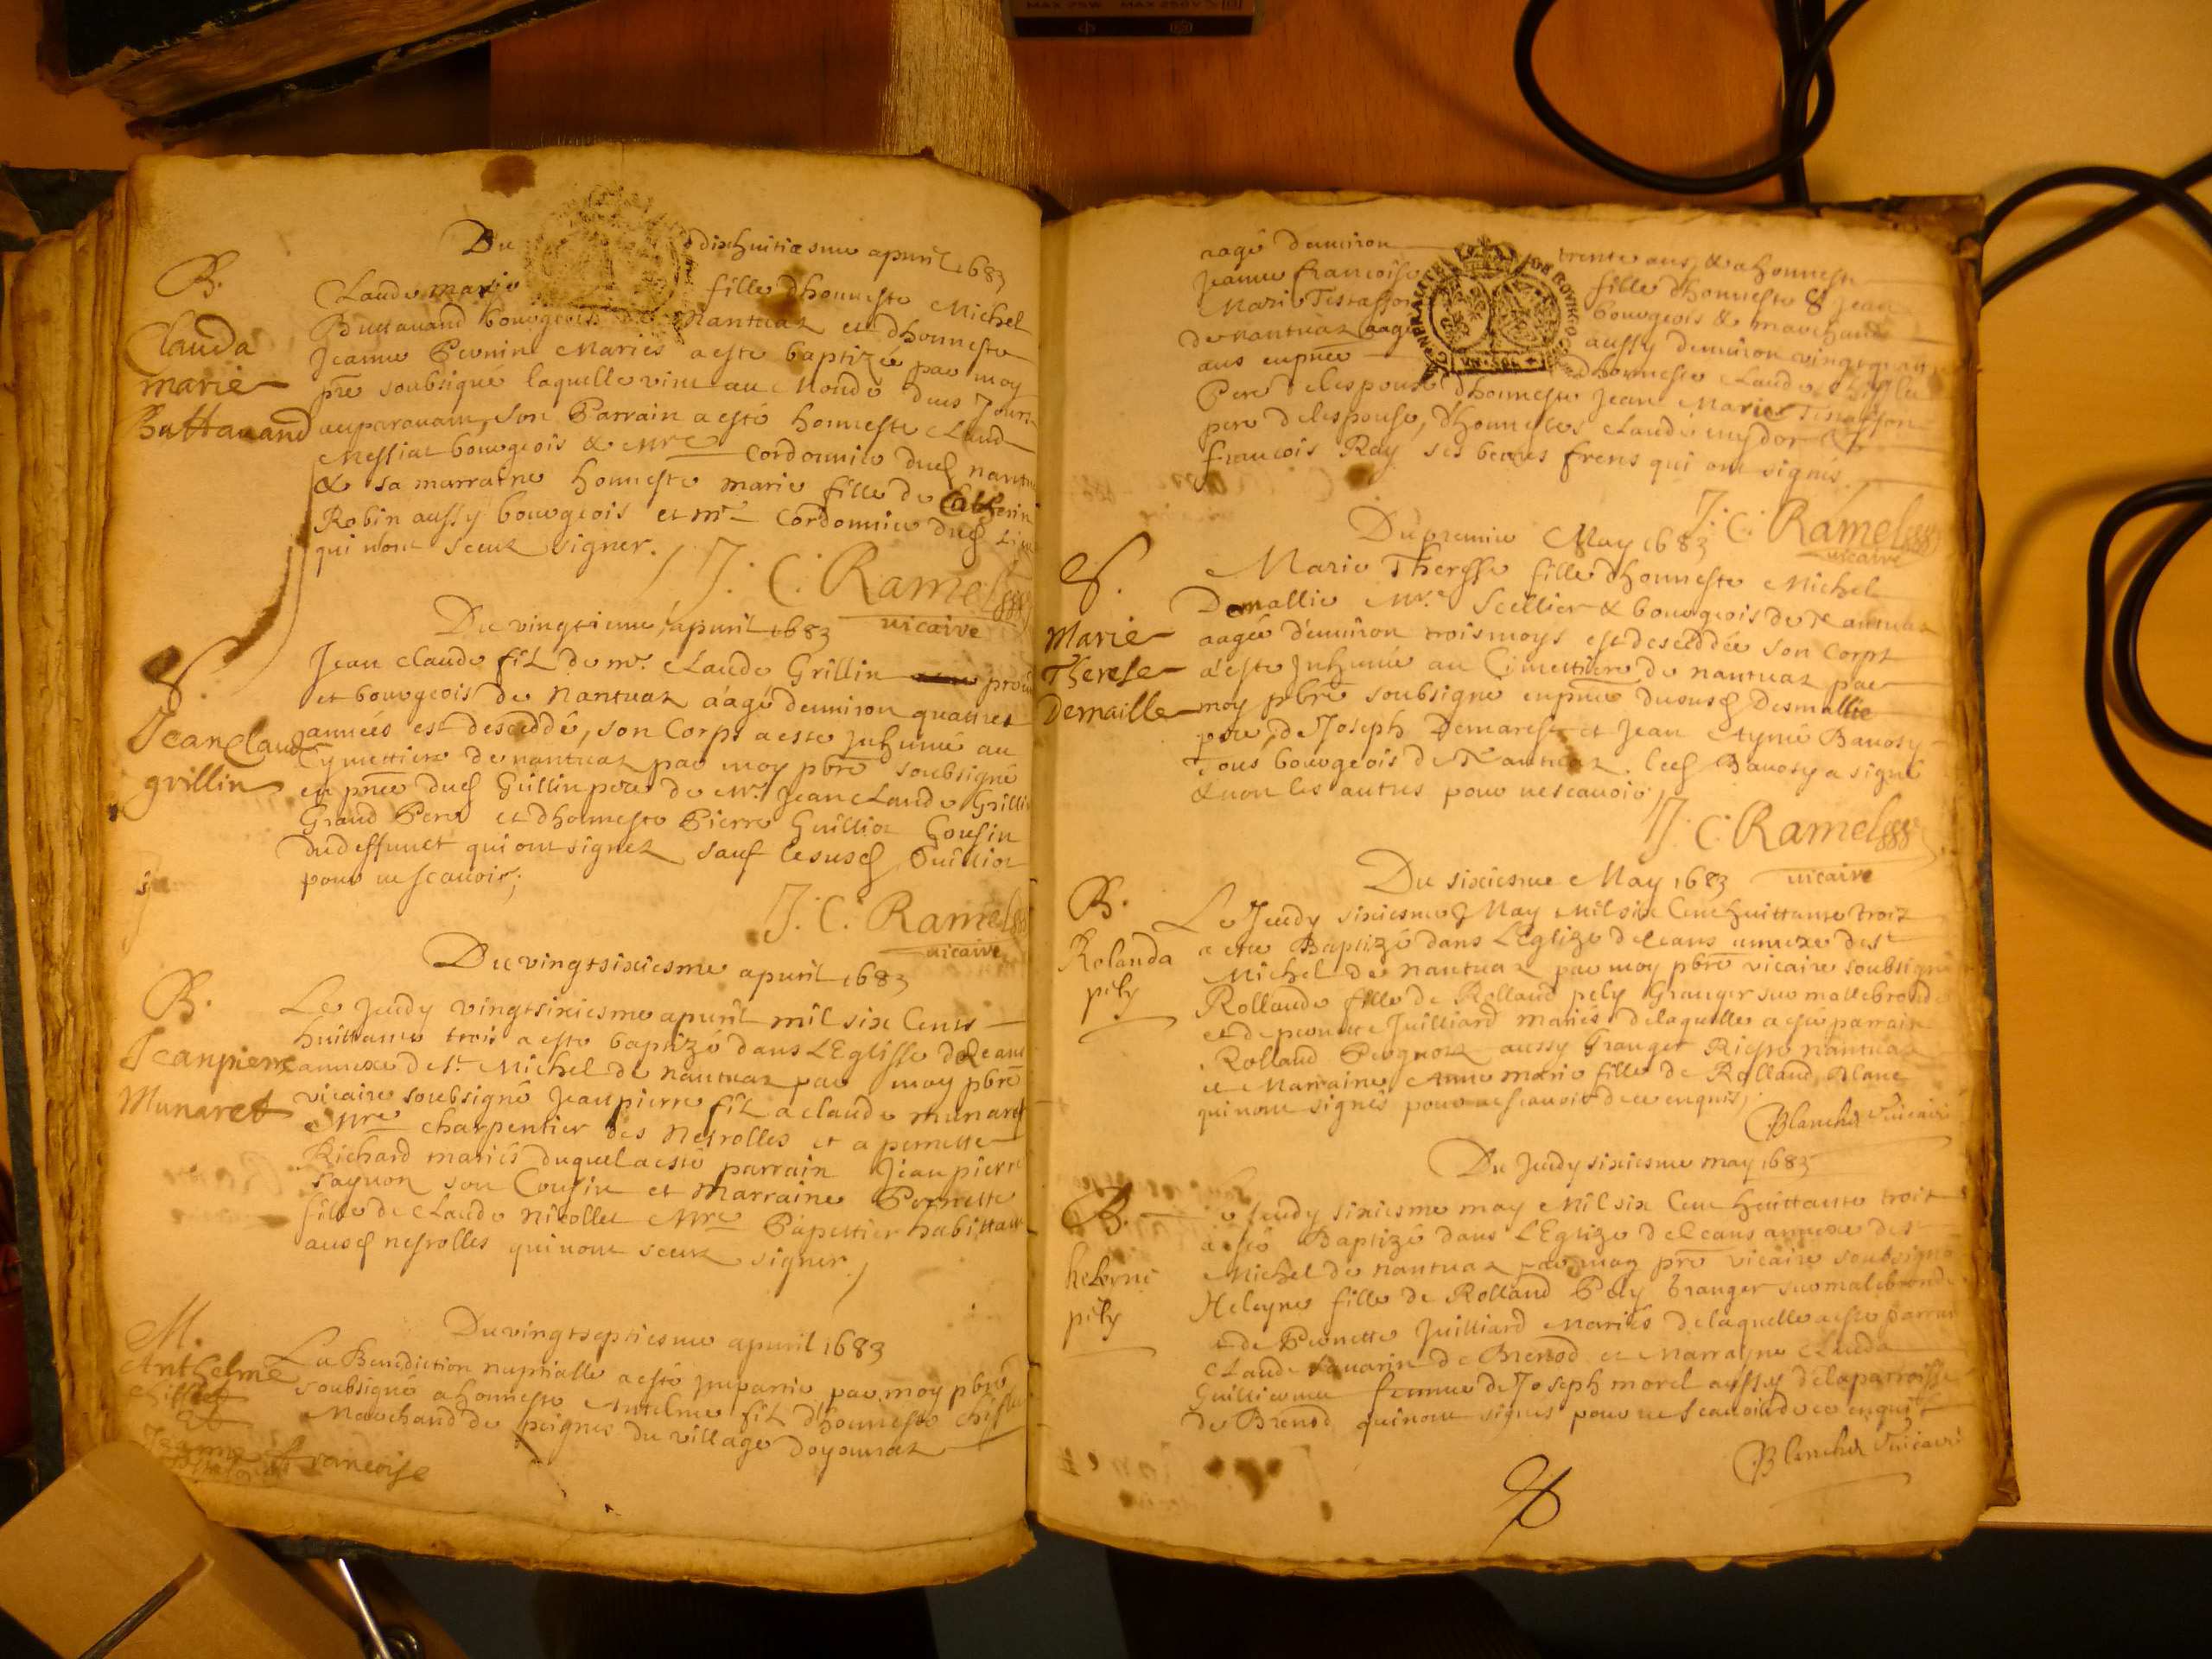 Du dixhuitiesme apuril 1683
B.
Clauda
marie
Buttauand
Claude marie fille dhonneste Michel
Buttauand bourgeois de Nantuaz et dhonneste
Jeanne Peronin Mariés a este baptizée par moy
pbre soubsigné laquelle vint au Monde deux Jours
auparauant, son Parrain a esté honneste Claud
Messiat bourgeois & Mre Cordonnier dud nantu
& sa marratne honneste marie fille de Catherin
Robin aussy bourgeois et mre Cordonnier dud lieu
qui n'ont sceuz signer.
J. C. Ramel
uicaire
Du vingtieme apuril 1683
S.
Jean Claud
grillin
Jean Claude fil de mr. Claude Grillin
et bourgeois de Nantuaz aagé denuiron quattres
années est deseddé, son Corps a este Inhumé au
Cymettiere de nantuaz par moy pbre soubsigné
en pnce dud Grillin pere de Mr. Jean Claude Grilli
Grand Pere et dhonneste Pierre Guilliot Cousin
du deffunct qui ont signez sauf le susd Guilliot
pour ne scauoir;
J. C. Ramel
uicaire
Du vingtsixiesme apuril 1683
B.
Jeanpierre
Munaret
Le Jeudy vingtsixiesme apuril mil six Cents
huittante trois a este baptizé dans LEglisse deleans
annexe de st. Michel de nantuaz par moy pbre
vicaire soubsigné Jeanpierre fil a claude munaret
Mre charpentier des Neyrolles et a pernette
Richard mariés duquel a esté parrain Jeanpierre
sayuon son Cousin et Marraine Pernette
fille de Claude Nicollet Mre Papettier habittant
ausd neyrolles qui n'ont sceuz signer
Du vingtseptiesme apuril 1683
M.
Anthelme
chillet
et
Jeanne francoise
La Benediction nuptialle a esté Impartie par moy pbre
soubsigné a honneste Antelme fil d'honneste
Marchand de peignes du village doyonnaz
aagé denuiron trente ans, & a honneste
Jeanne francoise fille dhonneste Jean
Marie Tissasson bourgeois & marchand
de nantuaz aagée aussy denuiron vingt
ans en pnce dhonneste Claude
Pere de lespoux dhonneste Jean Marie Tissasson
pere de lespouse, d'honnestes Claude &
francois Ray ses beaux freres qui ont signés.
J. C. Ramel
uicaire
Du premier May 1683
S.
Marie
Therese
Demaille
Marie Theresse fille dhonneste Michel
Demallie Mre Scellier & bourgeois de Nantuaz
aagée denuiron trois moys est deseddée son Corps
a este Inhumé au Cimettiere de nantuaz par
moy pbre soubsigné en pnce du susd Desmallie
pere, de Joseph Demarest et Jean Bauosy
Tous bourgeois de Nantuaz. led Bauosy a signé
& non les autres pour ne scauoir
J. C. Ramel
uicaire
Du sixiesme May 1683
B.
Rolanda
pely
Le Jeudy sixiesme May Mil six Cent huittante troiz
a este Baptizé dans LEglize deleans annexe de st
Michel de nantuaz par moy pbre vicaire soubsigné
Rollande fille de Rolland pely Granger sur mallebronde
et de pernette Juilliard mariés delaquelle a esté parrain
Rolland Pergnoz aussy Granger Riere nantuaz
et Marraine Anne marie fille de Rolland Blanc
qui n'ont signés pour ne scauoir de ce enquis
Blanchet Vicaire
Du Jeudy sixiesme may 1683
B.
heleyne
pely
Le Jeudy sixiesme may Mil six Cent huittante trois
a esté Baptizé dans LEglize deleans annexe de st
Michel de nantuaz par moy pbre vicaire soubsigné
Heleyne fille de Rolland Pely Granger sur malebronde
et de Pernette Juilliard Mariés delaquelle a este parrain
Claude sauarin de Brenod et Marrayne Clauda
Guillierme femme de Joseph morel aussy de la parroisse
de Brenod qui n'ont signés pour ne scauoir de ce enquis
Blanchet Vicaire